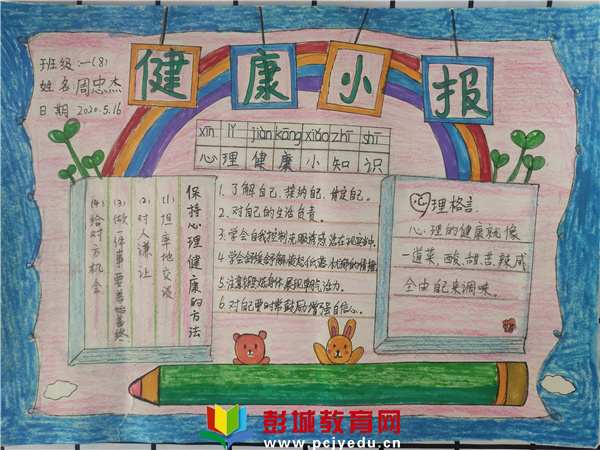 班级:一(8)
姓名:周忠杰
日期 2020.5.16
健康小报
xīn lǐ jiàn kāng xiǎo zhī shi
心理健康小知识
保持心理健康的方法
(1)坦率地交谈
(2)对人谦让
(3)做一件事要善始善终
(4)给对方机会
1.了解自己,接纳自己,肯定自己。
2.对自己的生活负责。
3.学会自我控制克服诱惑,活在现实当中。
4.学会舒缓舒解
的情绪
5.注意锻炼身体展现朝气活力。
6.对自己要时常鼓励增强自信心。
心理格言:
心理的健康就像
一道菜,酸、甜、苦、辣、咸
全由自己来调味。
彭城教育网
www.pcjyedu.cn